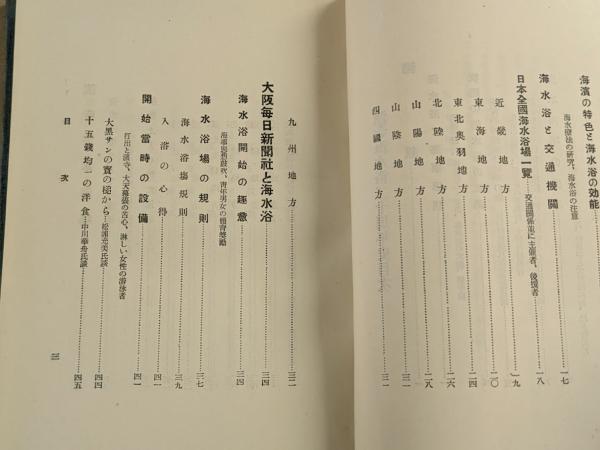 海濱の特色と海水浴の効能……一七
海水療法の研究、海水浴の注意
海水浴と交通機關……一八
日本全國海水浴場一覽……一九
交通關係並に主催者、後援者
近畿地方……二〇
東海地方……二四
東北奥羽地方……二六
北陸地方……二八
山陽地方……三一
山陰地方……三一
四國地方……三一
九州地方……三二
大阪毎日新聞社と海水浴……三四
海水浴開始の趣意……三四
海水浴場の規則……三七
海水浴場規則……三九
入浴の心得……四一
開始當時の設備……四一
打出と濱寺、大天幕張の苦心、淋しい女性の游泳者
大黒サンの寶の槌から——松浦充美氏談……四四
十五錢均一の洋食——中川華舟氏談……四五
目次
三